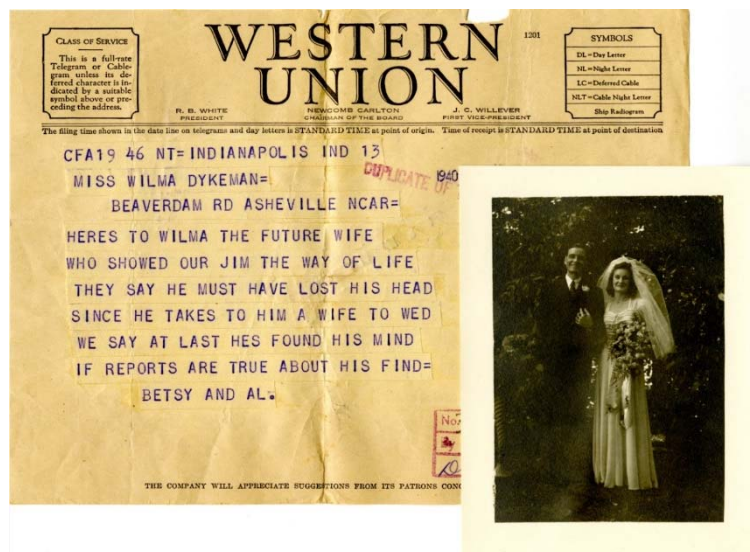 CLASS OF SERVICE
This is a full-rate
Telegram or Cable-
gram unless its de-
ferred character is in-
dicated by a suitable
symbol above or pre-
ceding the address.
WESTERN
UNION
1201
SYMBOLS
DL=Day Letter
NL=Night Letter
LC=Deferred Cable
NLT=Cable Night Letter
Ship Radiogram
R. B. WHITE
PRESIDENT
NEWCOMB CARLTON
CHAIRMAN OF THE BOARD
J. C. WILLEVER
FIRST VICE-PRESIDENT
The filing time shown in the date line on telegrams and day letters is STANDARD TIME at point of origin. Time of receipt is STANDARD TIME at point of destination
CFA19 46 NT=INDIANAPOLIS IND 13
DUPLICATE OF
1940
MISS WILMA DYKEMAN=
BEAVERDAM RD ASHEVILLE NCAR=
HERES TO WILMA THE FUTURE WIFE
WHO SHOWED OUR JIM THE WAY OF LIFE
THEY SAY HE MUST HAVE LOST HIS HEAD
SINCE HE TAKES TO HIM A WIFE TO WED
WE SAY AT LAST HES FOUND HIS MIND
IF REPORTS ARE TRUE ABOUT HIS FIND=
BETSY AND AL.
No
By
THE COMPANY WILL APPRECIATE SUGGESTIONS FROM ITS PATRONS CONC